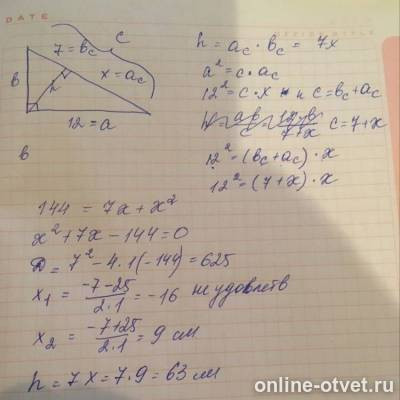 DATE
c
7 = b_c
в
h
x = a_c
12 = a
в
h = a_c · b_c = 7x
a² = c · a_c
12² = c · x и c = b_c + a_c
c = 7 + x
12² = (b_c + a_c) · x
12² = (7 + x) · x
144 = 7x + x²
x² + 7x - 144 = 0
D = 7² - 4 · 1 (-144) = 625
x₁ = (-7 - 25)/(2 · 1) = -16 не удовлетв
x₂ = (-7 + 25)/(2 · 1) = 9 см
h = 7x = 7 · 9 = 63 см
online-otvet.ru